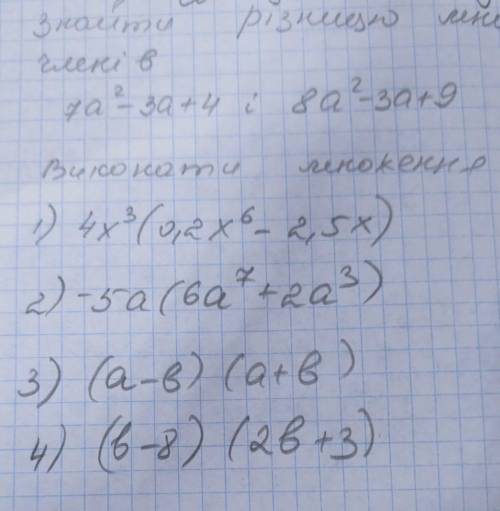 Знайти різницю мно
членів
7a²-3a+4 i 8a²-3a+9
Виконати множення
1) 4x³(0,2x⁶- 2,5x)
2) -5a(6a⁷+2a³)
3) (a-b) (a+b)
4) (b-8) (2b+3)